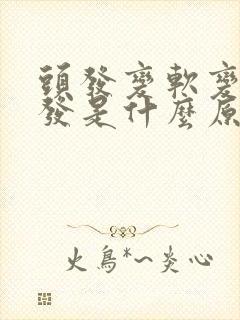 頭發變軟變
發是什麼原
火鳥*~炎心